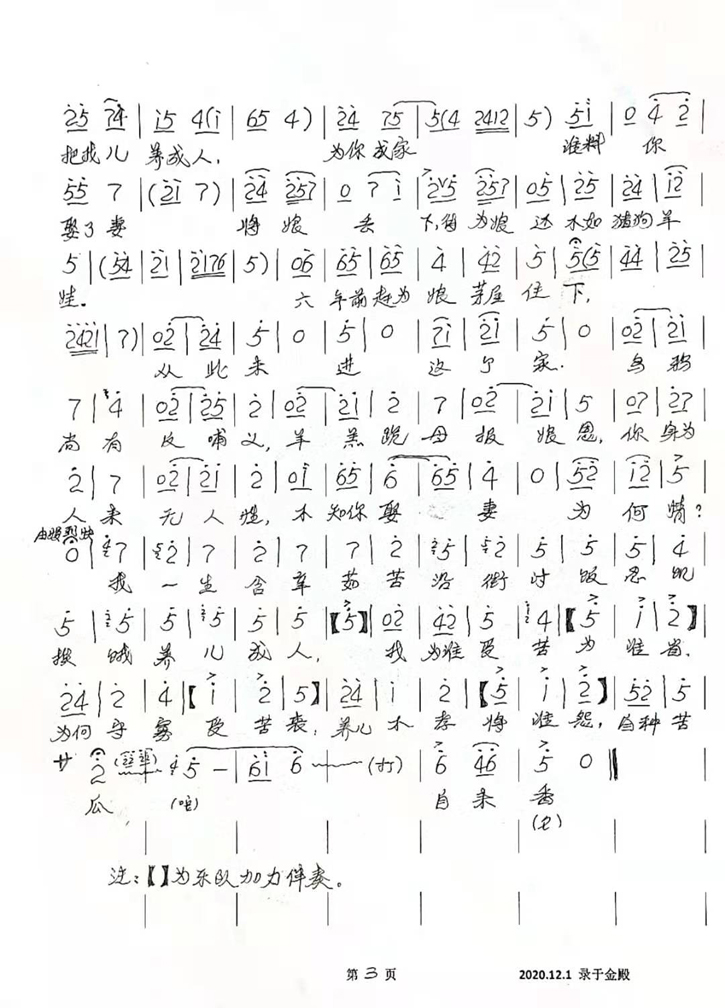 25 74 | i5 4(i | 65 4) | 24 75 | 5(4 2412 | 5) 5i | 0 4 2
把我儿 养成人, 为你成家 谁料 你
55 7 | (2i 7) | 24 257 | 0 7 i | 2v5 257 | 05 | 25 | 24 | i2
娶了妻 将娘 丢 下, 为娘 还 不如 猪狗羊
5 | (54 | 21 | 2176 | 5) | 06 | 65 | 65 | 4 | 42 | 5 | 5(5 | 44 | 25
娃。 六 年前赶为 娘 茅屋 住 下,
2421 | 7) | 02 | 24 | 5 | 0 | 5 | 0 | 7i | 2i | 5 | 0 | 02 | 2i
从 此 未 进 这 个 家. 乌 鸦
7 | 4 | 02 | 25 | 2 | 02 | 2i | 2 | 7 | 02 | 2i | 5 | 07 | 27
尚 有 反 哺 义, 羊 羔 跪 母 报 娘 恩, 你 身为
2 | 7 | 02 | 2i | 2 | 0i | 65 | 6 | 65 | 4 | 0 | 52 | i2 | 5
人 来 无 人 性, 不 知你 娶 妻 为 何 情?
由慢到快
0 | 7 | 2 | 7 | 2 | 7 | 7 | 2 | 5 | 2 | 5 | 5 | 5 | 4
我 一 生 含 辛 茹 苦 沿 街 讨 饭 忍 饥
5 | 5 | 5 | 5 | 5 | 5 | 【5】 | 02 | 42 | 5 | 4 | 【5 | i | 2】
挨 饿 养 儿 成 人, 我 为谁 受 苦 为 谁
24 | 2 | 4 | 【i | 2 | 5】 | 24 | i | 2 | 【5 | i | 2】 | 52 | 5
为何 守 寡 受 苦 衷, 养儿 不 孝 将 谁 怨, 自种 苦
サ 2 5 — | 6i 6 (打) | 6 46 | 5 0
瓜 (啦) 自 来 香
注:【】为乐队加力伴奏。
第 3 页 2020.12.1 录于金殿